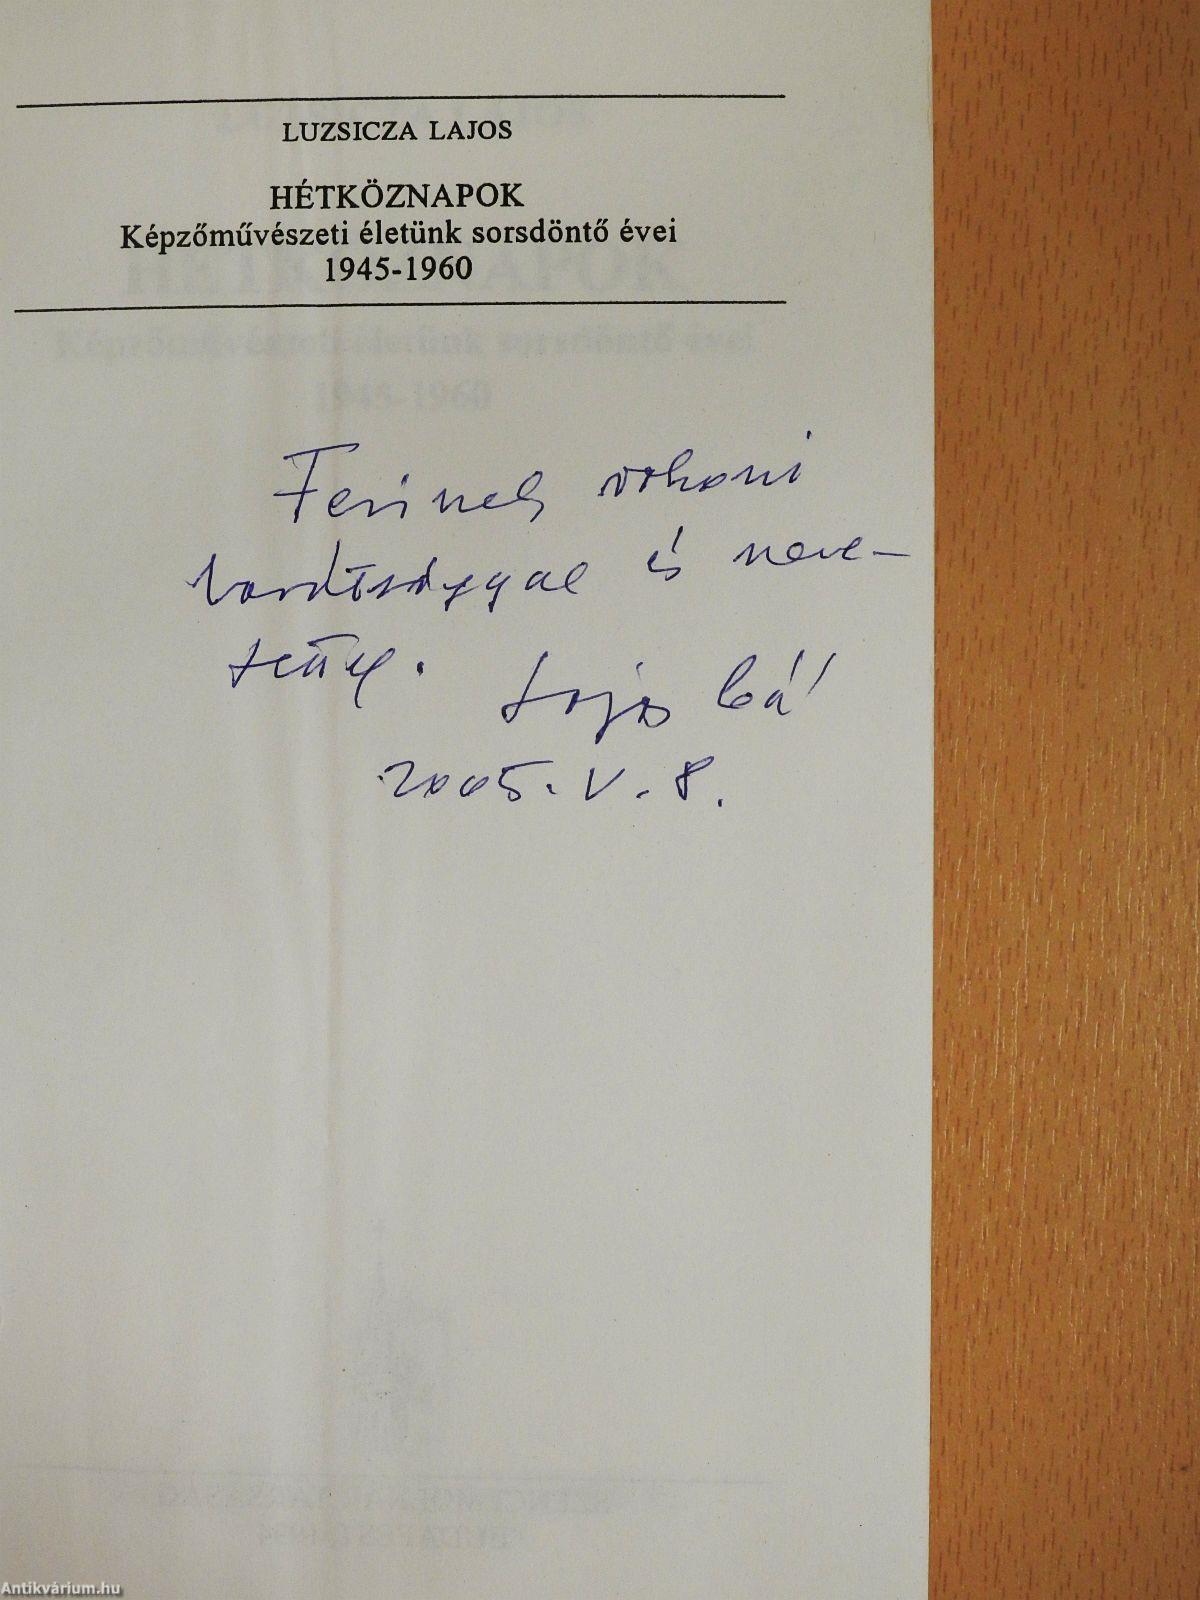 LUZSICZA LAJOS
HÉTKÖZNAPOK
Képzőművészeti életünk sorsdöntő évei
1945-1960
Ferinek rokoni
barátsággal és
Lajos bá!
2005. V. 8.
Antikvárium.hu